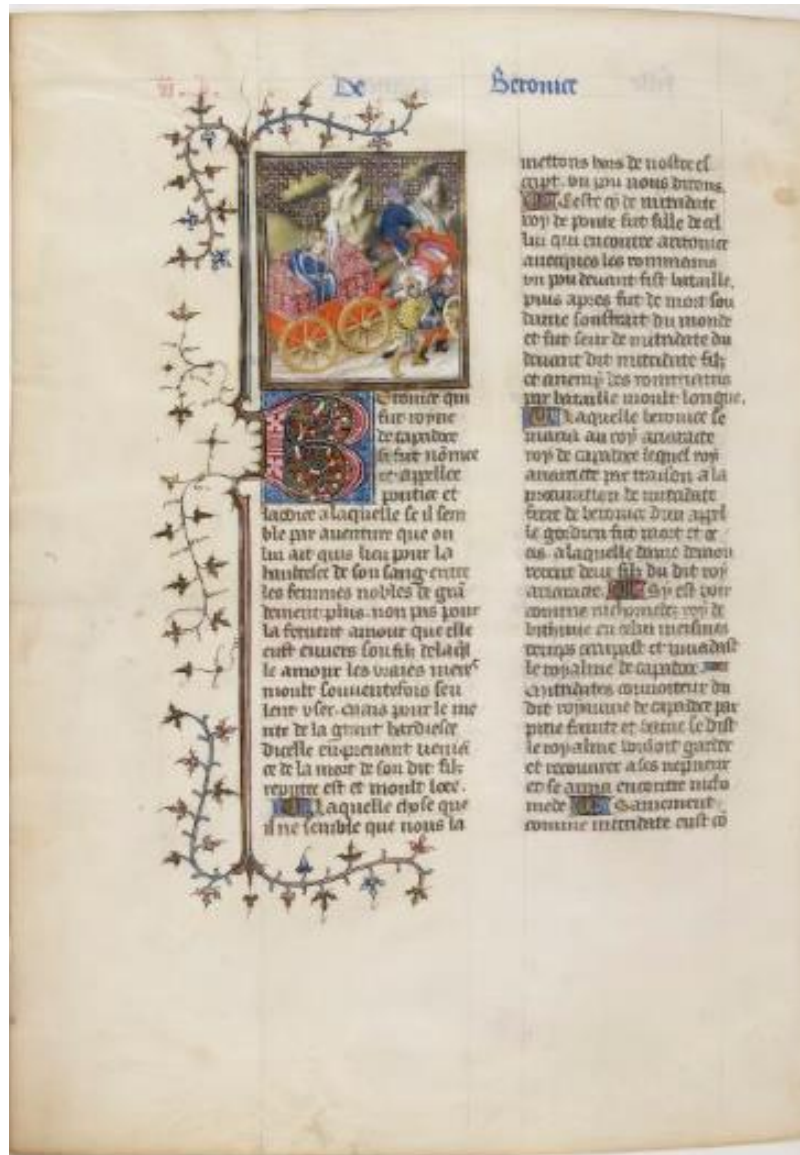 De Beronice
Beronice qui
fut royne
de capadoce
si fut nōmee
et appellee
pontice et
laodice a laquelle se il sem
ble par auenture que on
lui ait quis lieu pour la
haultesce de son sang entre
les femmes nobles de grā
dement plus non pas pour
la feruent amour que elle
eust enuers son filz de laq̄l
le amour les vraies meres
moult souuentefois seu
lent vser. mais pour le me
rite de la grant hardiesce
dicelle en prenant venia
ce de la mort de son dit filz
reputee est et moult loee.
Laquelle chose que
il ne semble que nous la
mettons hors de nostre es
cript. vn pou nous dirons.
Ceste cy de mitridate
roy de ponte fut fille de cel
lui qui encontre aritonice
auecques les rommains
vn pou deuant fist bataille.
puis apres fut de mort sou
daine soustrait du monde
et fut seur de mitridate du
deuant dit mitridate filz
et anemy des rommains
par bataille moult longue.
Laquelle beronice se
maria au roy ariaracte
roy de capadoce lequel roy
ariaracte par traison a la
procuration de mitridate
frere de beronice dun appel
le gordien fut mort et oc
cis. a laquelle dame demou
rerent deux filz du dit roy
ariaracte. Sy est voir
comme nichomedez roy de
bithinie en celui meismes
temps occupast et
le royalme de capadoce
mitridates conuoiteux du
dit royaume de capadoce par
pitie fainte et faulse se dist
le royalme vouloir garder
et recouurer a ses nepueux
et se arma encontre nicho
mede Sainement
comme mitridate eust cō